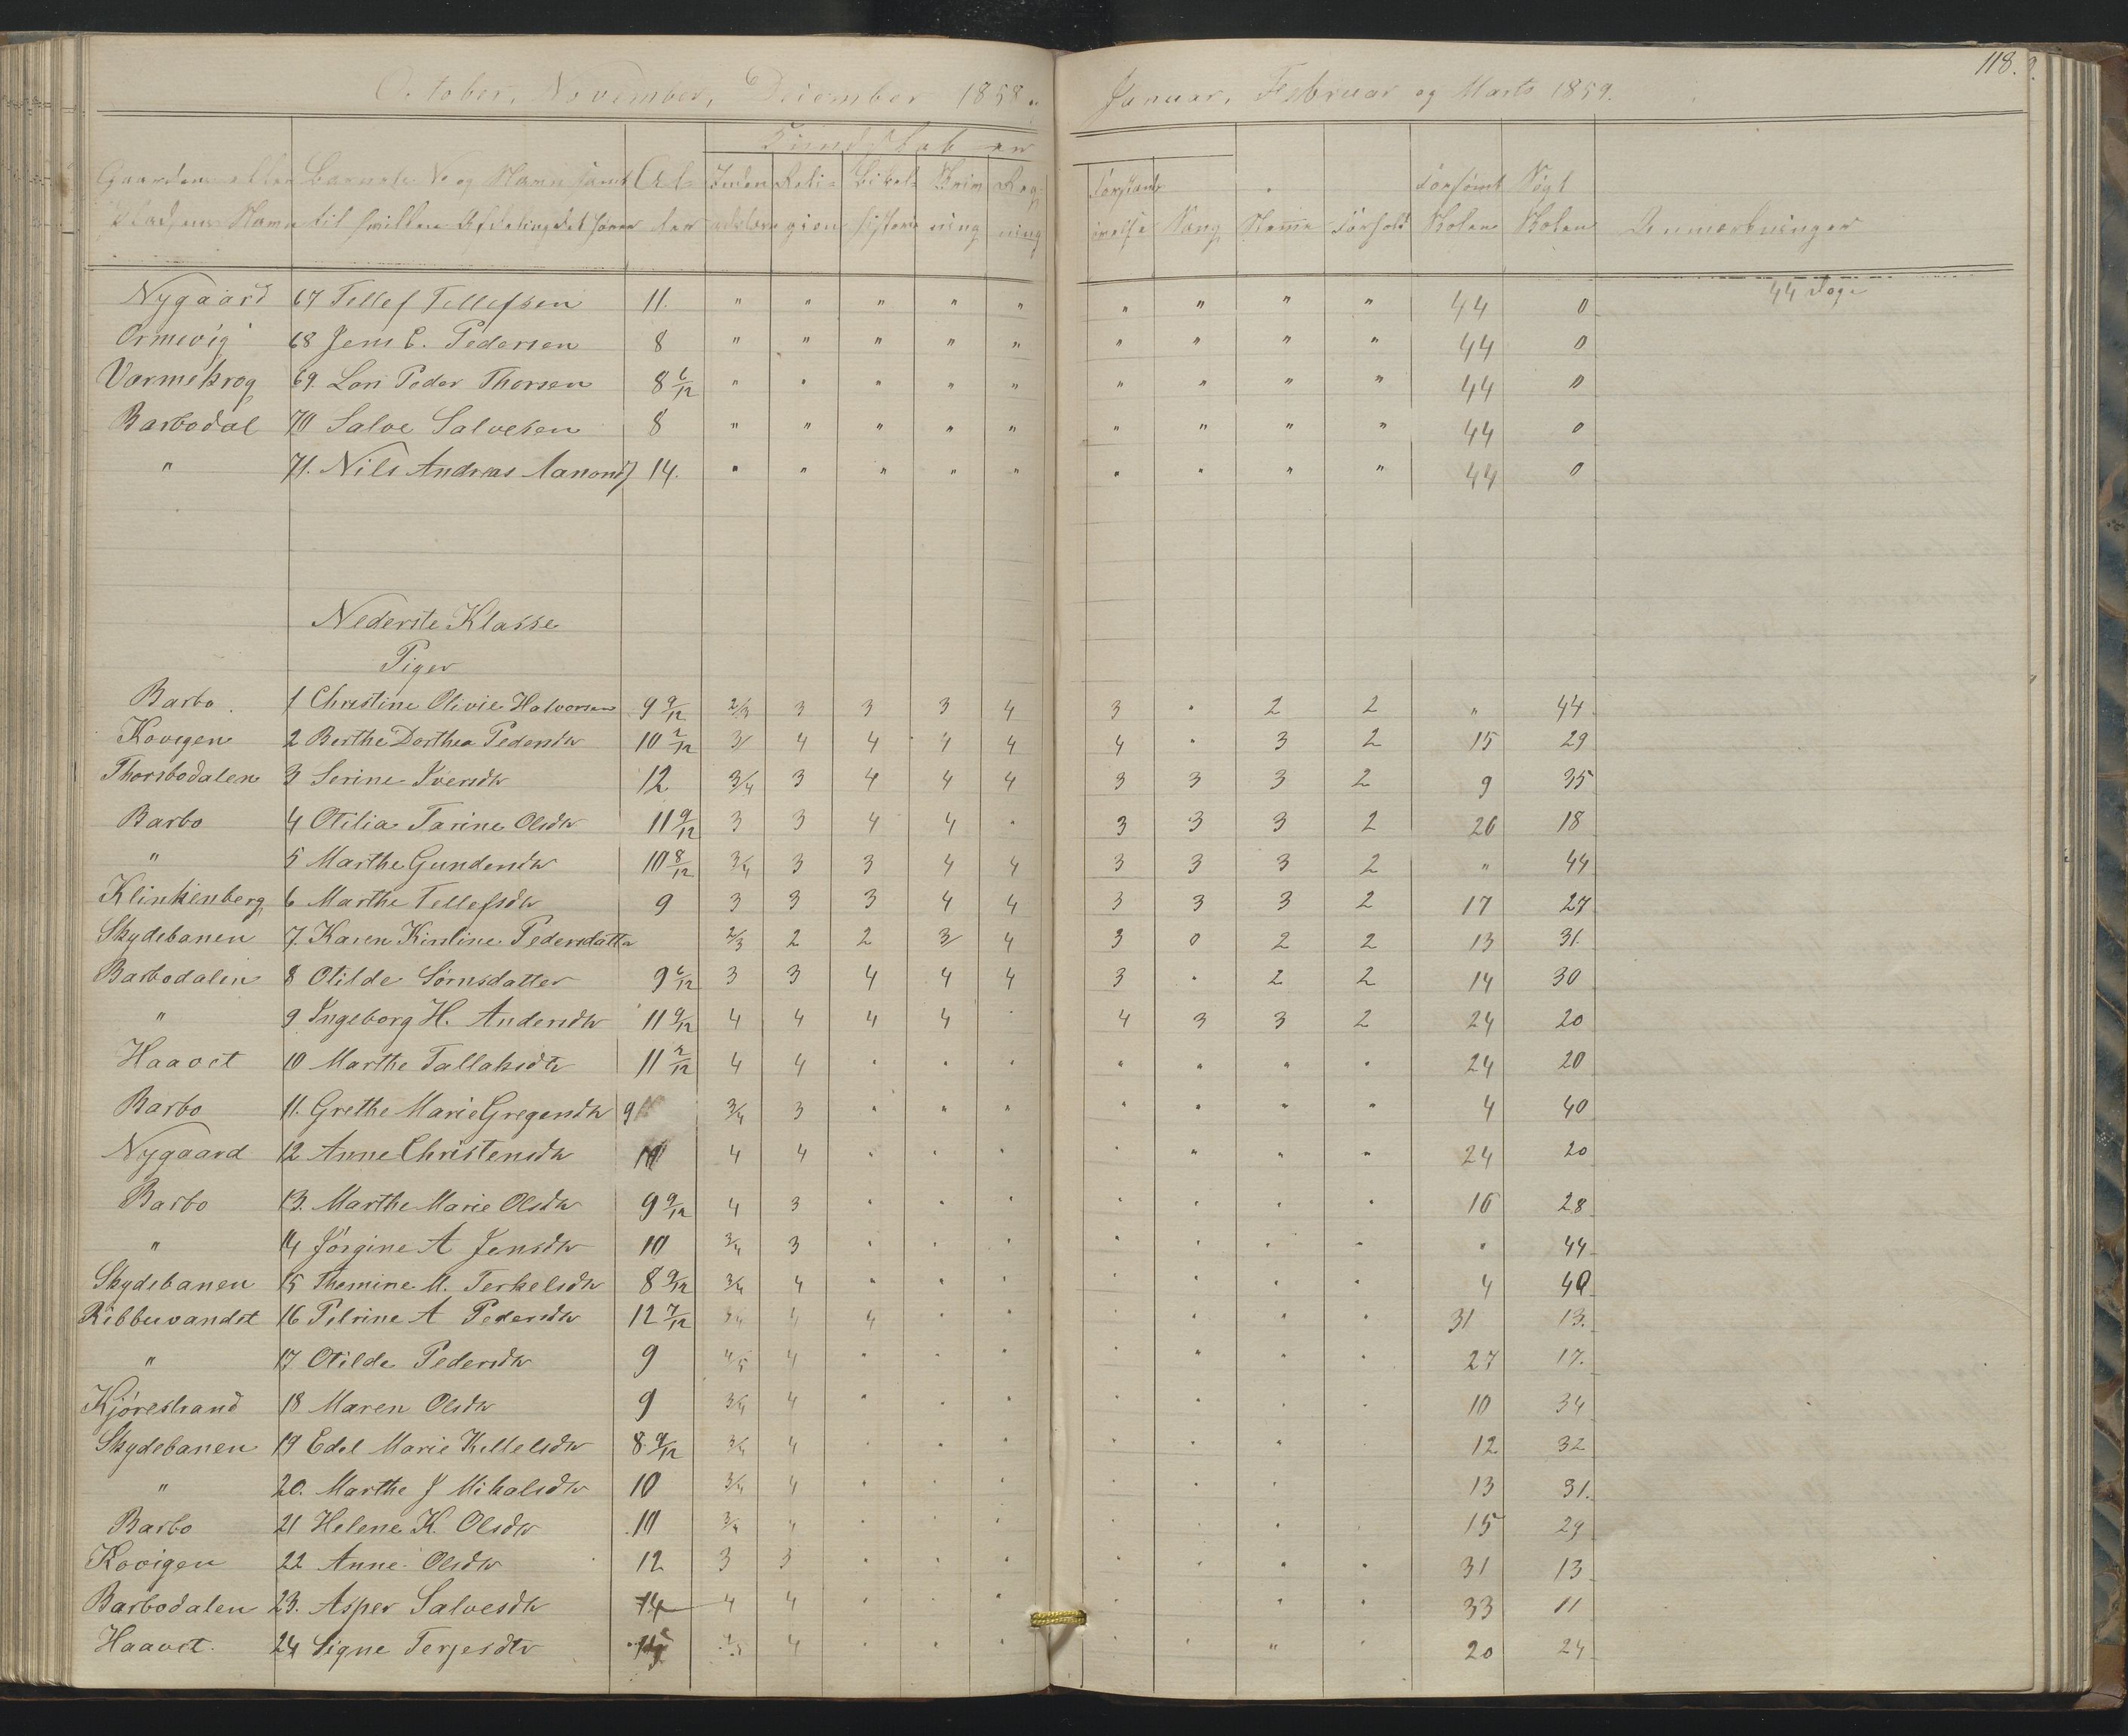 118.
October, November, December 1858. Januar, Februar og Marts 1859.
Kundskaber
Gaardens eller Barnets No og Navn samt Al- Inden Reli- Bibel- Skriv Reg- Forstands Forsømt Søgt
Pladsens Navn til hvilken Afdeling det hører der gion historie ning ning Sang Forhold Skolen Skolen Anmærkninger
Nygaard 67 Tellef Tellefsen 11. " " " " " " " " " 44 0 44 Dage
Ormevig 68 Jens C. Pedersen 8 " " " " " " " " " 44 0
Varmekrog 69. Lars Peder Thorsen 8 6/12 " " " " " " " " " 44 0
Barbodal 70 Salve Salvesen 8 " " " " " " " " " 44 0
" 71. Nils Andreas Aanonds 14. " " " " " " " " " 44 0
Nederste Klasse
Piger
Barbo. 1 Christine Olivie Halvorsen 9 9/12 2/3 3 3 3 4 3 " 2 2 " 44
Kovigen 2 Berthe Dorthea Pedersdtr 10 2/12 3/ 4 4 4 4 4 " 3 2 15 29
Thorsbodalen 3 Serine Iversdtr 12 3/4 3 4 4 4 3 3 3 2 9 35
Barbo 4 Otilia Tarine Olsdtr 11 9/12 3 3 4 4 " 3 3 3 2 26 18
" 5 Marthe Gundersdtr 10 8/12 3/4 3 3 4 4 3 3 3 2 " 44
Klinkenberg 6 Marthe Tellefsdtr 9 3 3 3 4 4 3 3 3 2 17 27
Skydebanen 7. Karen Kirstine Pedersdatter 2/3 2 2 3/ 4 3 0 2 2 13 31.
Barbodalen 8 Otilde Sørnsdatter 9 6/12 3 3 4 4 4 3 " 2 2 14 30
" 9 Ingeborg H. Andersdtr 11 9/12 4 4 4 4 " 4 3 3 2 24 20
Haavet 10 Marthe Tallaksdtr 11 2/12 4 4 " " " " " " " 24 20
Barbo 11. Grethe Marie Gregersdtr 9 3/4 3 " " " " " " " 4 40
Nygaard 12 Anne Christensdtr 4 4 " " " " " " " 24 20
Barbo 13. Marthe Marie Olsdtr 9 9/12 4 3 " " " " " " " 16 28
" 14 Jørgine A Jensdtr 10 3/4 3 " " " " " " " " 44
Skydebanen 15 Themine M. Terkelsdtr 8 9/12 3/4 4 " " " " " " " 4 40
Ribbuvandet 16 Petrine A Pedersdtr 12 7/12 3/4 4 4 " " " " " " 31 13.
" 17 Otilde Pedersdtr 9 4/5 4 " " " " " " " 27 17.
Kjørestrand 18 Maren Olsdtr 9 3/4 4 " " " " " " " 10 34
Skydebanen 19 Edel Marie Killelsdtr 8 9/12 3/4 4 " " " " " " 12 32
" 20. Marthe J Mikalsdtr 10 3/4 4 " " " " " " 13 31.
Barbo 21 Helene K. Olsdtr 10 3/4 4 " " " " " " " 15 29
Kovigen 22 Anne Olsdtr 12 3 3 " " " " " " " 31 13
Barbodalen 23. Asper Salvesdtr 14 4 4 " " " " " " 33 11
Haavet. 24 Signe Terjesdtr 4 " " " " " " " 20 24